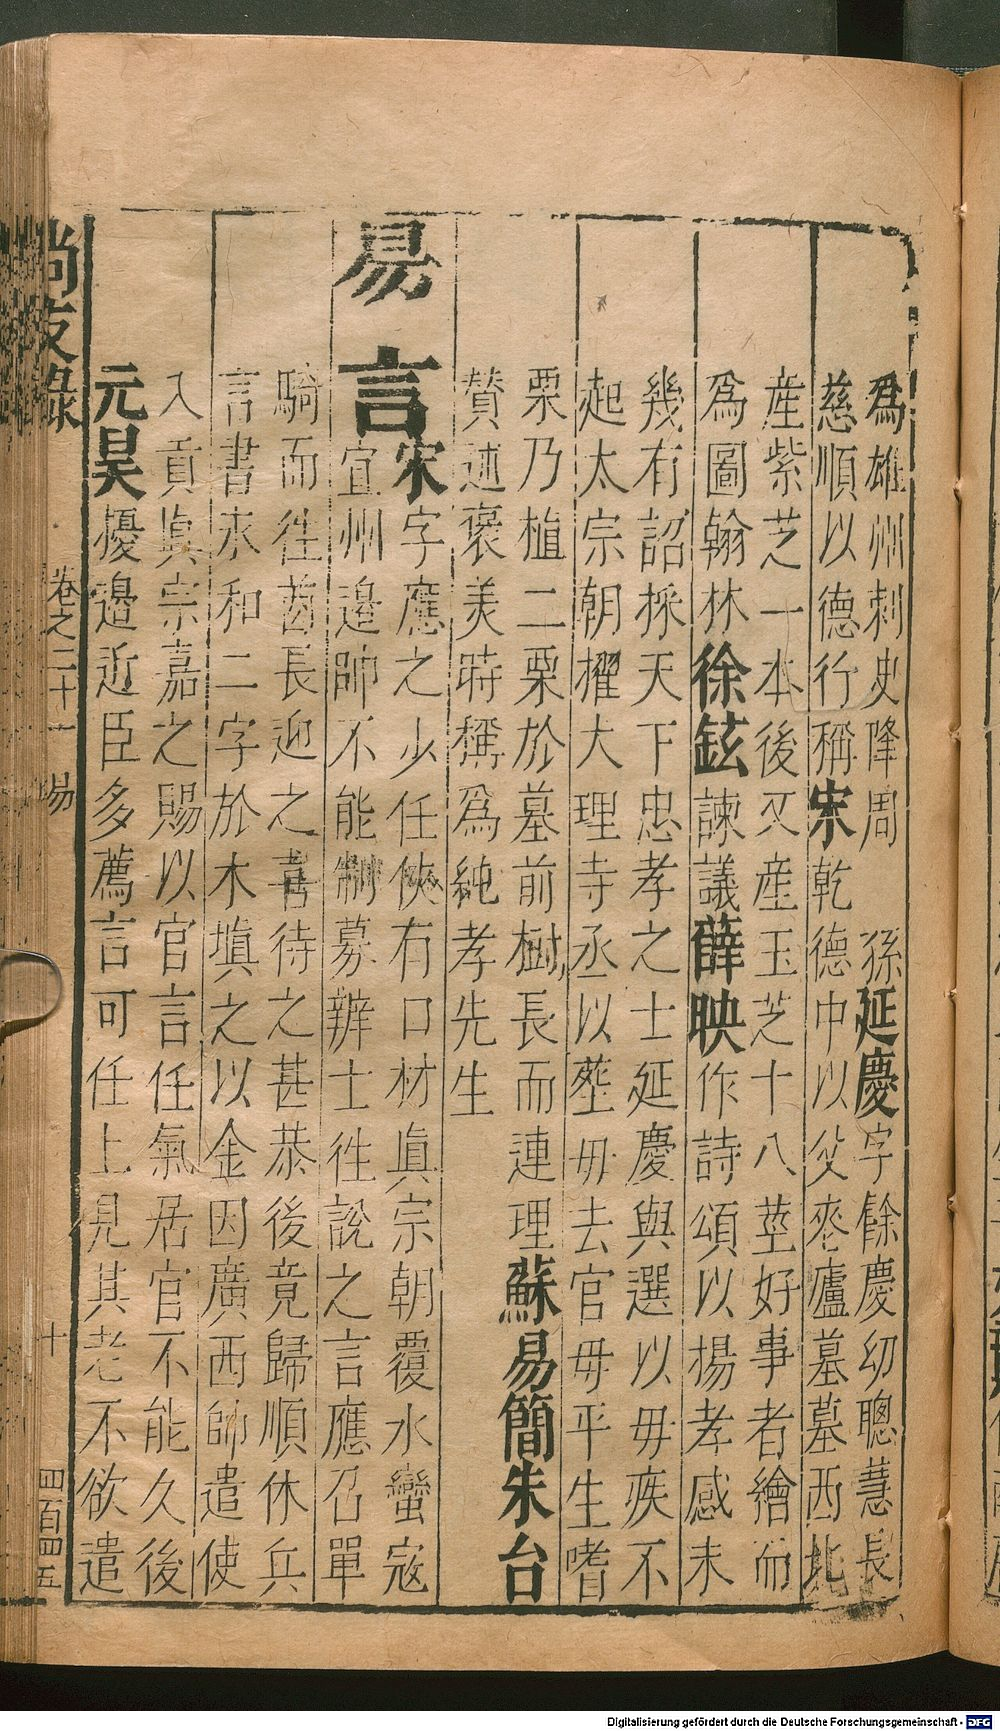 爲雄州刺史降周 孫延慶字餘慶幼聰慧長
慈順以德行稱宋乾德中以父喪廬墓墓西北
産紫芝一本後又産玉芝十八莖好事者繪而
爲圖翰林徐鉉諫議薛映作詩頌以揚孝感未
幾有詔採天下忠孝之士延慶與選以毋疾不
起太宗朝擢大理寺丞以塟毋去官毋平生嗜
栗乃植二栗於墓前樹長而連理蘇易簡朱台
賛述褒美時稱爲純孝先生
易言宋字應之少任俠有口材眞宗朝覆水蠻寇
宜州邉帥不能制募辦士徃說之言應召單
騎而徃酋長迎之喜待之甚恭後竟歸順休兵
言書永和二字於木塡之以金因廣西帥遣使
入貢眞宗嘉之賜以官言任氣居官不能久後
元昊擾邉近臣多薦言可任上見其老不欲遣
尚友錄 卷之二十一 易 十 四百四五
Digitalisierung gefördert durch die Deutsche Forschungsgemeinschaft - DFG